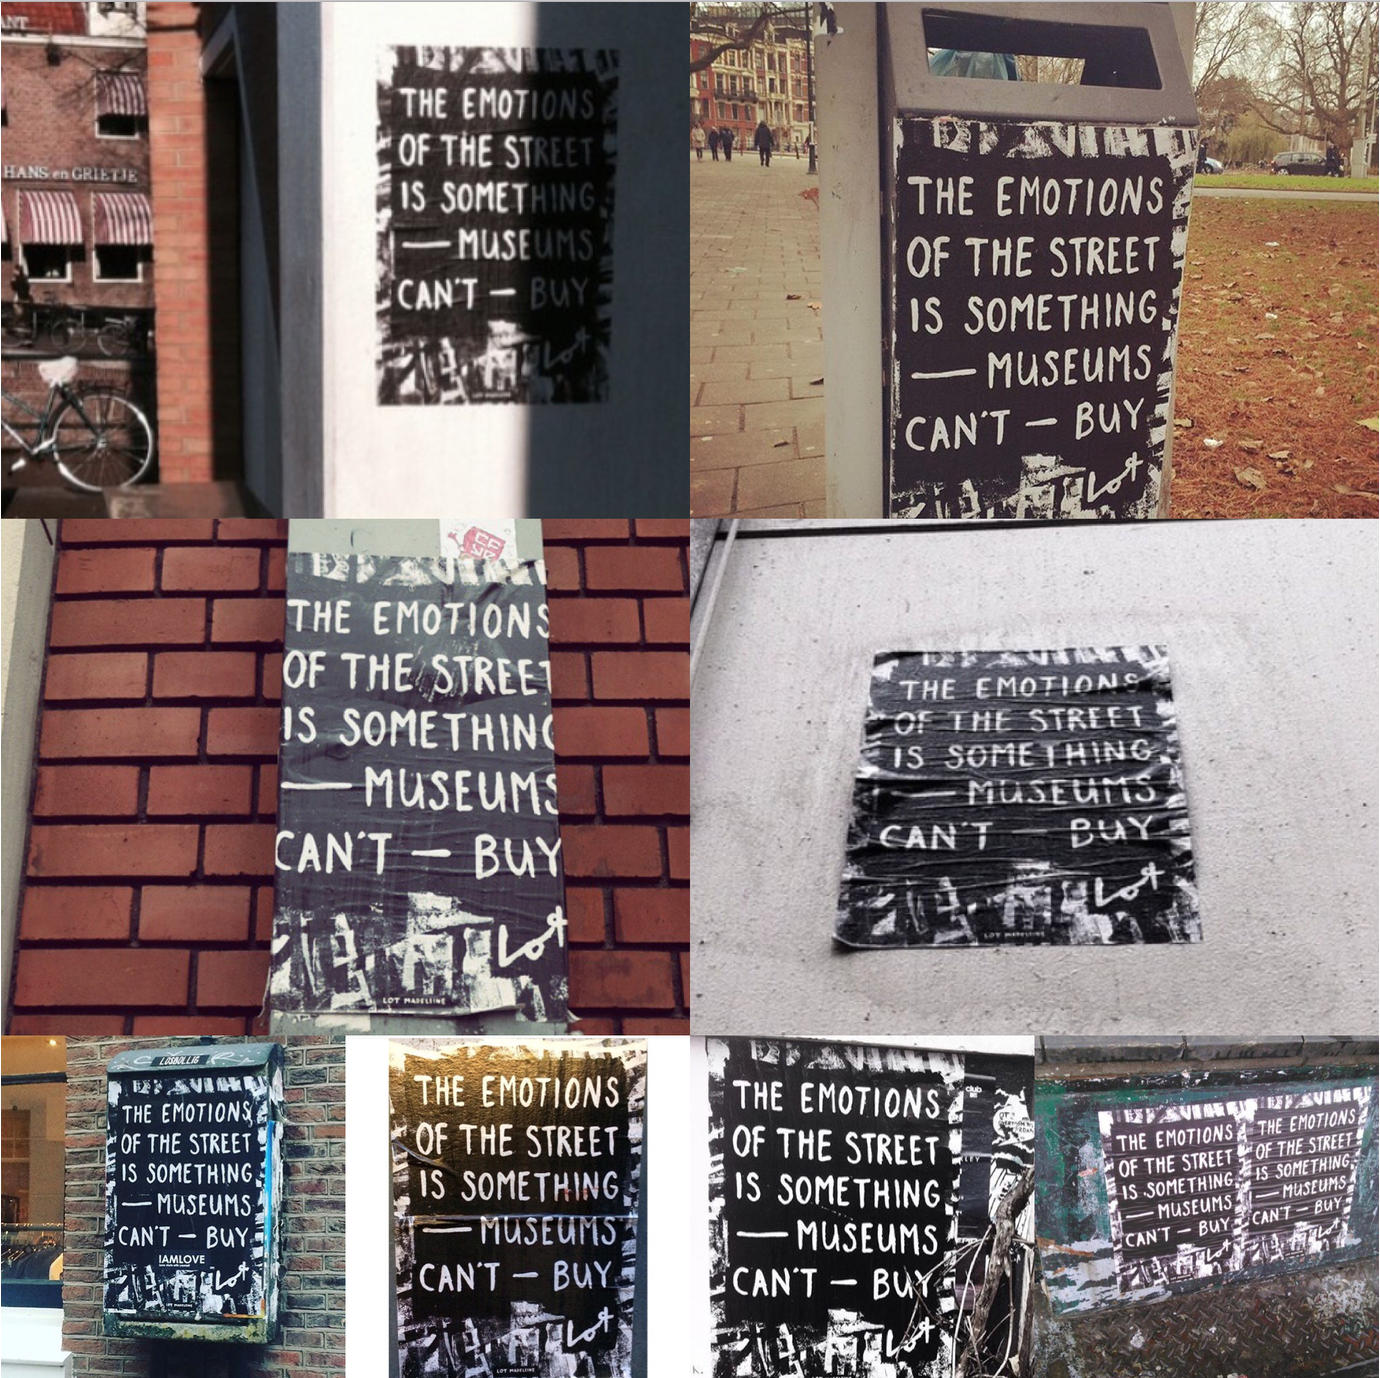 ANT
HANS en GRIETJE
THE EMOTIONS
OF THE STREET
IS SOMETHING
— MUSEUMS
CAN'T — BUY
Lot
LOT MADELEINE
THE EMOTIONS
OF THE STREET
IS SOMETHING
— MUSEUMS
CAN'T — BUY
Lot
THE EMOTIONS
OF THE STREET
IS SOMETHING
— MUSEUMS
CAN'T — BUY
Lot
LOT MADELEINE
THE EMOTIONS
OF THE STREET
IS SOMETHING
— MUSEUMS
CAN'T — BUY
Lot
LOT MADELEINE
LOSBOLLIG
THE EMOTIONS
OF THE STREET
IS SOMETHING
— MUSEUMS
CAN'T — BUY
IAMLOVE
Lot
LOT MADELEINE
THE EMOTIONS
OF THE STREET
IS SOMETHING
— MUSEUMS
CAN'T — BUY
Lot
LOT MADELEINE
THE EMOTIONS
OF THE STREET
IS SOMETHING
— MUSEUMS
CAN'T — BUY
Lot
club
THE EMOTIONS
OF THE STREET
IS SOMETHING
— MUSEUMS
CAN'T — BUY
Lot
THE EMOTIONS
OF THE STREET
IS SOMETHING
— MUSEUMS
CAN'T — BUY
Lot